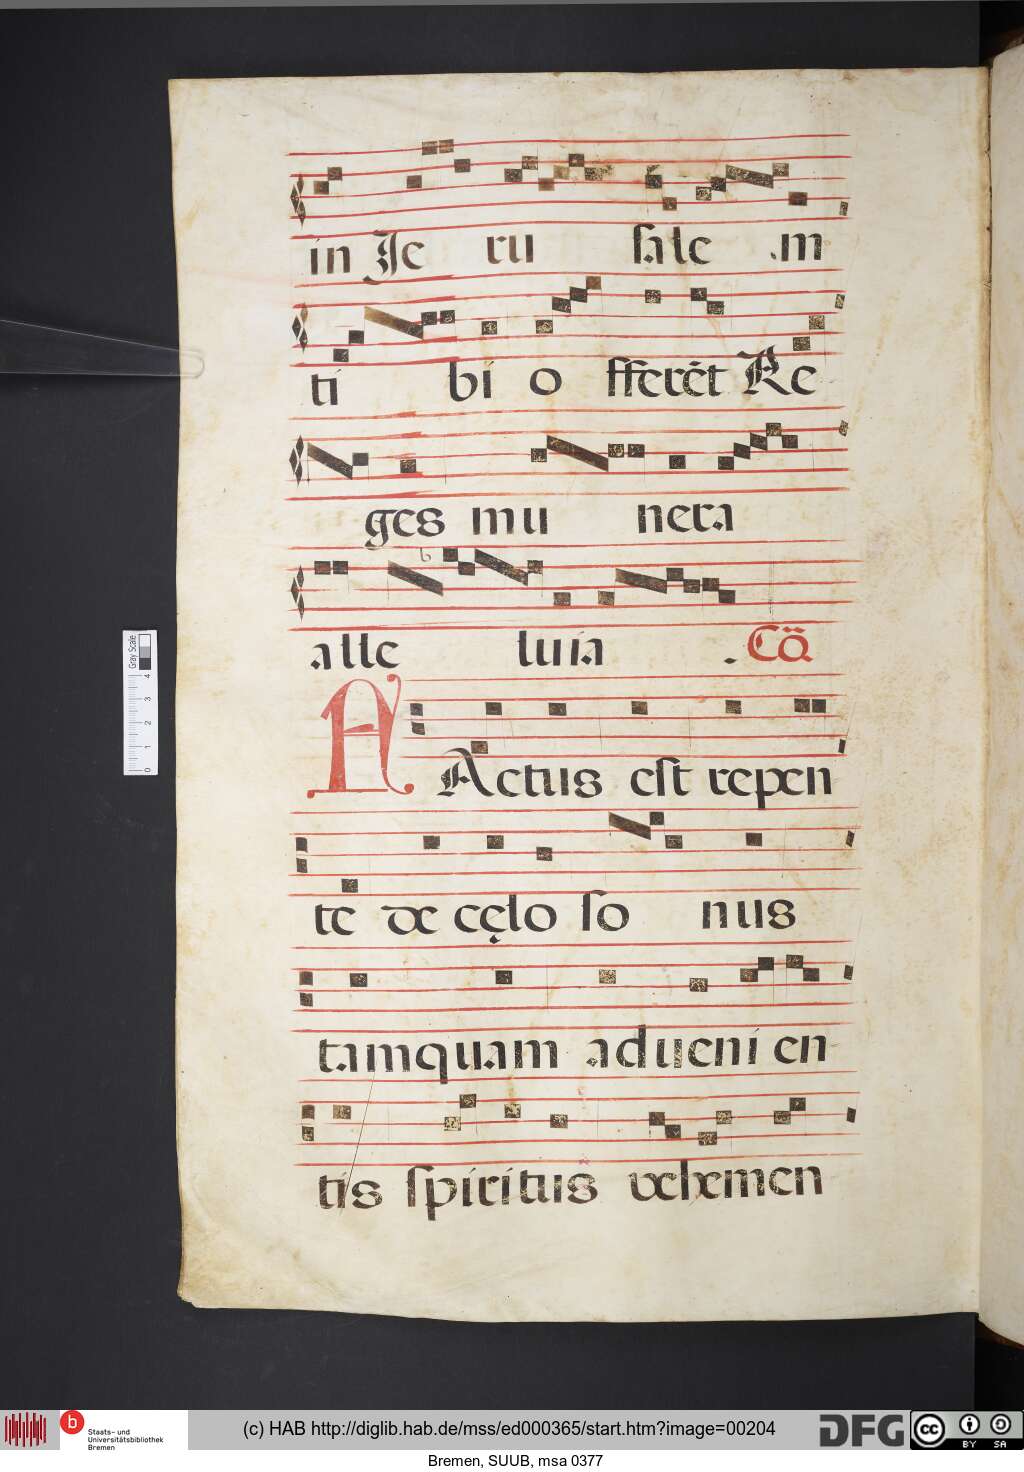 in Je ru sale .m
ti bi o fferēt Re
ges mu nera
b
alle luia . Cō
F Actus est repen
te de cęlo so nus
tamquam adueni en
tis spiritus vehemen
Gray Scale
4
3
2
1
0
b Staats- und
Universitätsbibliothek
Bremen
(c) HAB http://diglib.hab.de/mss/ed000365/start.htm?image=00204
DFG
cc BY SA
Bremen, SUUB, msa 0377